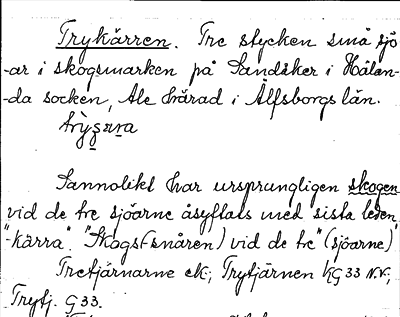 Trykärren. Tre stycken små sjö
-ar i skogsmarken på Sandåker i Hålan-
da socken, Ale härad i Älfsborgs län.
Sannolikt har ursprungligen skogen
vid de tre sjöarne åsyftats med sista leden
"-kärra". "Skogs(-snåren) vid de tre" (sjöarne)"
Tretjärnarne ek; Trytjärnen KG33 N.V.;
Trytj. G33.